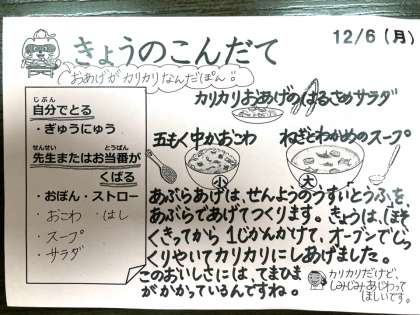 きょうのこんだて
12/6(月)
おあげがカリカリなんだぽん!!
じぶん
自分でとる
・ぎゅうにゅう
せんせい とうばん
先生またはお当番が
くばる
・おぼん・ストロー
・おこわ ・はし
・スープ
・サラダ
カリカリおあげのはるさめサラダ
五もく中かおこわ
小
ねぎとわかめのスープ
大
あぶらあげは、せんようのうすいとうふを、
あぶらであげてつくります。きょうは、ほそ
くきってから1じかんかけて、オーブンでじっ
くりやいてカリカリにしあげました。
このおいしさには、てまひま
がかかっているんですね。
カリカリだけど、
しみじみあじわって
ほしいです。